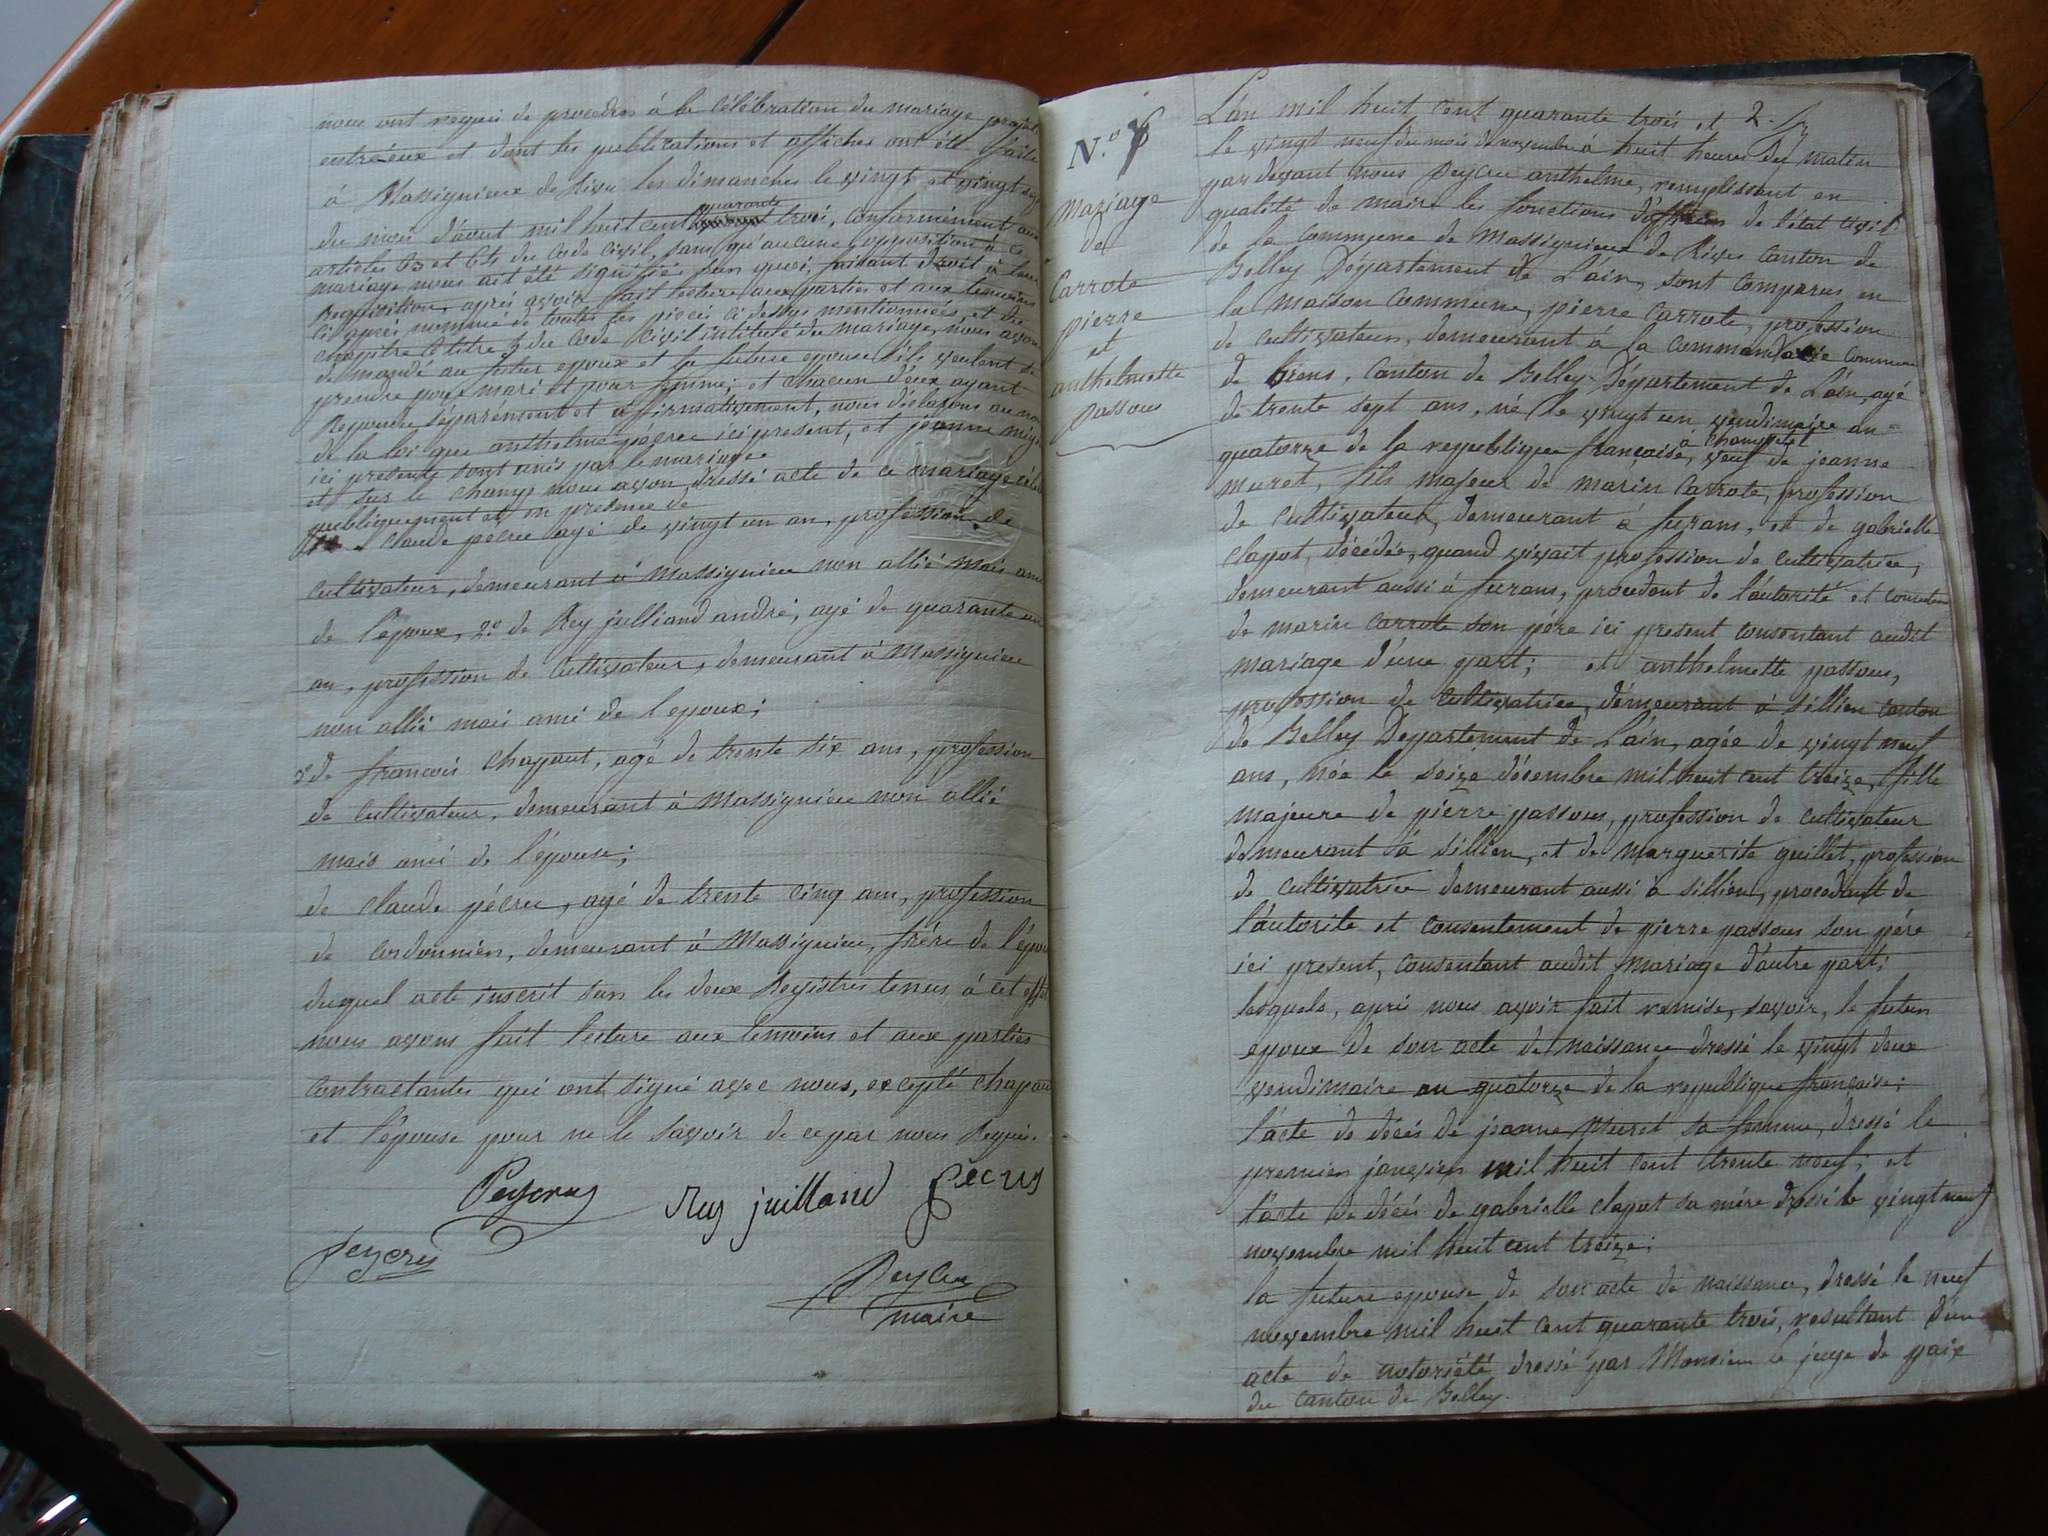 nous ont requis de procéder à la célébration du mariage projeté
entr'eux et dont les publications et affiches ont été faites
à Massignieux de Rives les dimanches le vingt et vingt sept
du mois d'aout mil huit cent quarante trois, conformément aux
articles 63 et 64 du Code Civil, sans qu'aucune opposition à ce
mariage nous ait été signifiée sur quoi, faisant droit à leur
requisition, après avoir fait lecture aux parties et aux temoins
ci après nommé de toutes les pieces ci dessus mentionnées, et du
chapitre 6 titre 5 du Code Civil intitulé du mariage, nous avons
demandé au futur epoux et la future epouse s'ils veulent se
prendre pour mari et pour femme; et chacun d'eux ayant
Repondu séparément et affirmativement, nous déclarons au nom
de la loi que anthelme pécru ici present, et jeanne
ici presente sont unis par le mariage
et sur le champ nous avons dressé acte de ce mariage célébré
publiquement et en presence de
claude pécru agé de vingt un an, profession de
Cultivateur, demeurant à Massignieu non allié mais ami
de l'époux, 2º de Rey juilliand andré, agé de quarante un
an, profession de Cultivateur, demeurant à Massignieu
non allié mais ami de l'epoux;
3º de francois chapout, agé de trente six ans, profession
de Cultivateur, demeurant à Massignieu non allié
mais ami de l'épouse;
de claude pécru, agé de trente cinq ans, profession
de Cordonnier, demeurant à Massignieu, frère de l'époux
duquel acte inscrit sur les deux Registres tenus à cet effet
nous avons fait lecture aux temoins et aux parties
contractantes qui ont signé avec nous, excepté chapout
et l'épouse pour ne le savoir de ce par nous Requis.
Peycru Rey juilland Pécru
Peycru
Peycru
maire
N.º 7
Mariage
de
Carrote
pierre
et
anthelmette
passous
L'an mil huit cent quarante trois et 2.
le vingt neuf du mois de novembre à huit heures du matin
pardevant nous Peycru anthelme, remplissant en
qualité de maire les fonctions d'officier de l'état civil
de la commune de Massignieux de Rives Canton de
Belley Département de L'ain, sont comparus en
la maison commune, pierre Carrote, profession
de cultivateur, demeurant à la commanderie commune
de brens, Canton de Belley Département de L'ain, agé
de trente sept ans, né le vingt un vendimaire an
quatorze de la republique francaise, à Champetel veuf de jeanne
muret, fils majeur de marin Carrote, profession
de Cultivateur, demeurant à furans, et de gabrielle
clapot, décédée, quand vivait profession de cultivatrice,
demeurant aussi à furans, procedant de l'autorité et consentement
de marin carrote son père ici present consentant audit
mariage d'une part; et anthelmette passous,
profession de cultivatrice, demeurant à sillien canton
de Belley Département de L'ain, agée de vingt neuf
ans, née le seize décembre mil huit cent treize, fille
majeure de pierre passous, profession de cultivateur
demeurant à sillien, et de marguerite guillet, profession
de cultivatrice demeurant aussi à sillien, procedant de
l'autorité et consentement de pierre passous son père
ici present, consentant audit mariage d'autre part;
lesquels, après nous avoir fait remise, savoir, le futur
époux de son acte de naissance dressé le vingt deux
vendimaire an quatorze de la republique francaise;
l'acte de décès de jeanne Muret sa femme, dressé le
premier janvier mil huit cent trente neuf; et
l'acte de décès de gabrielle clapot sa mère dressé le vingt neuf
novembre mil huit cent treize;
la future epouse de son acte de naissance, dressé le neuf
novembre mil huit cent quarante trois, resultant d'un
acte de notoriété dressé par Monsieur le juge de paix
du canton de Belley.